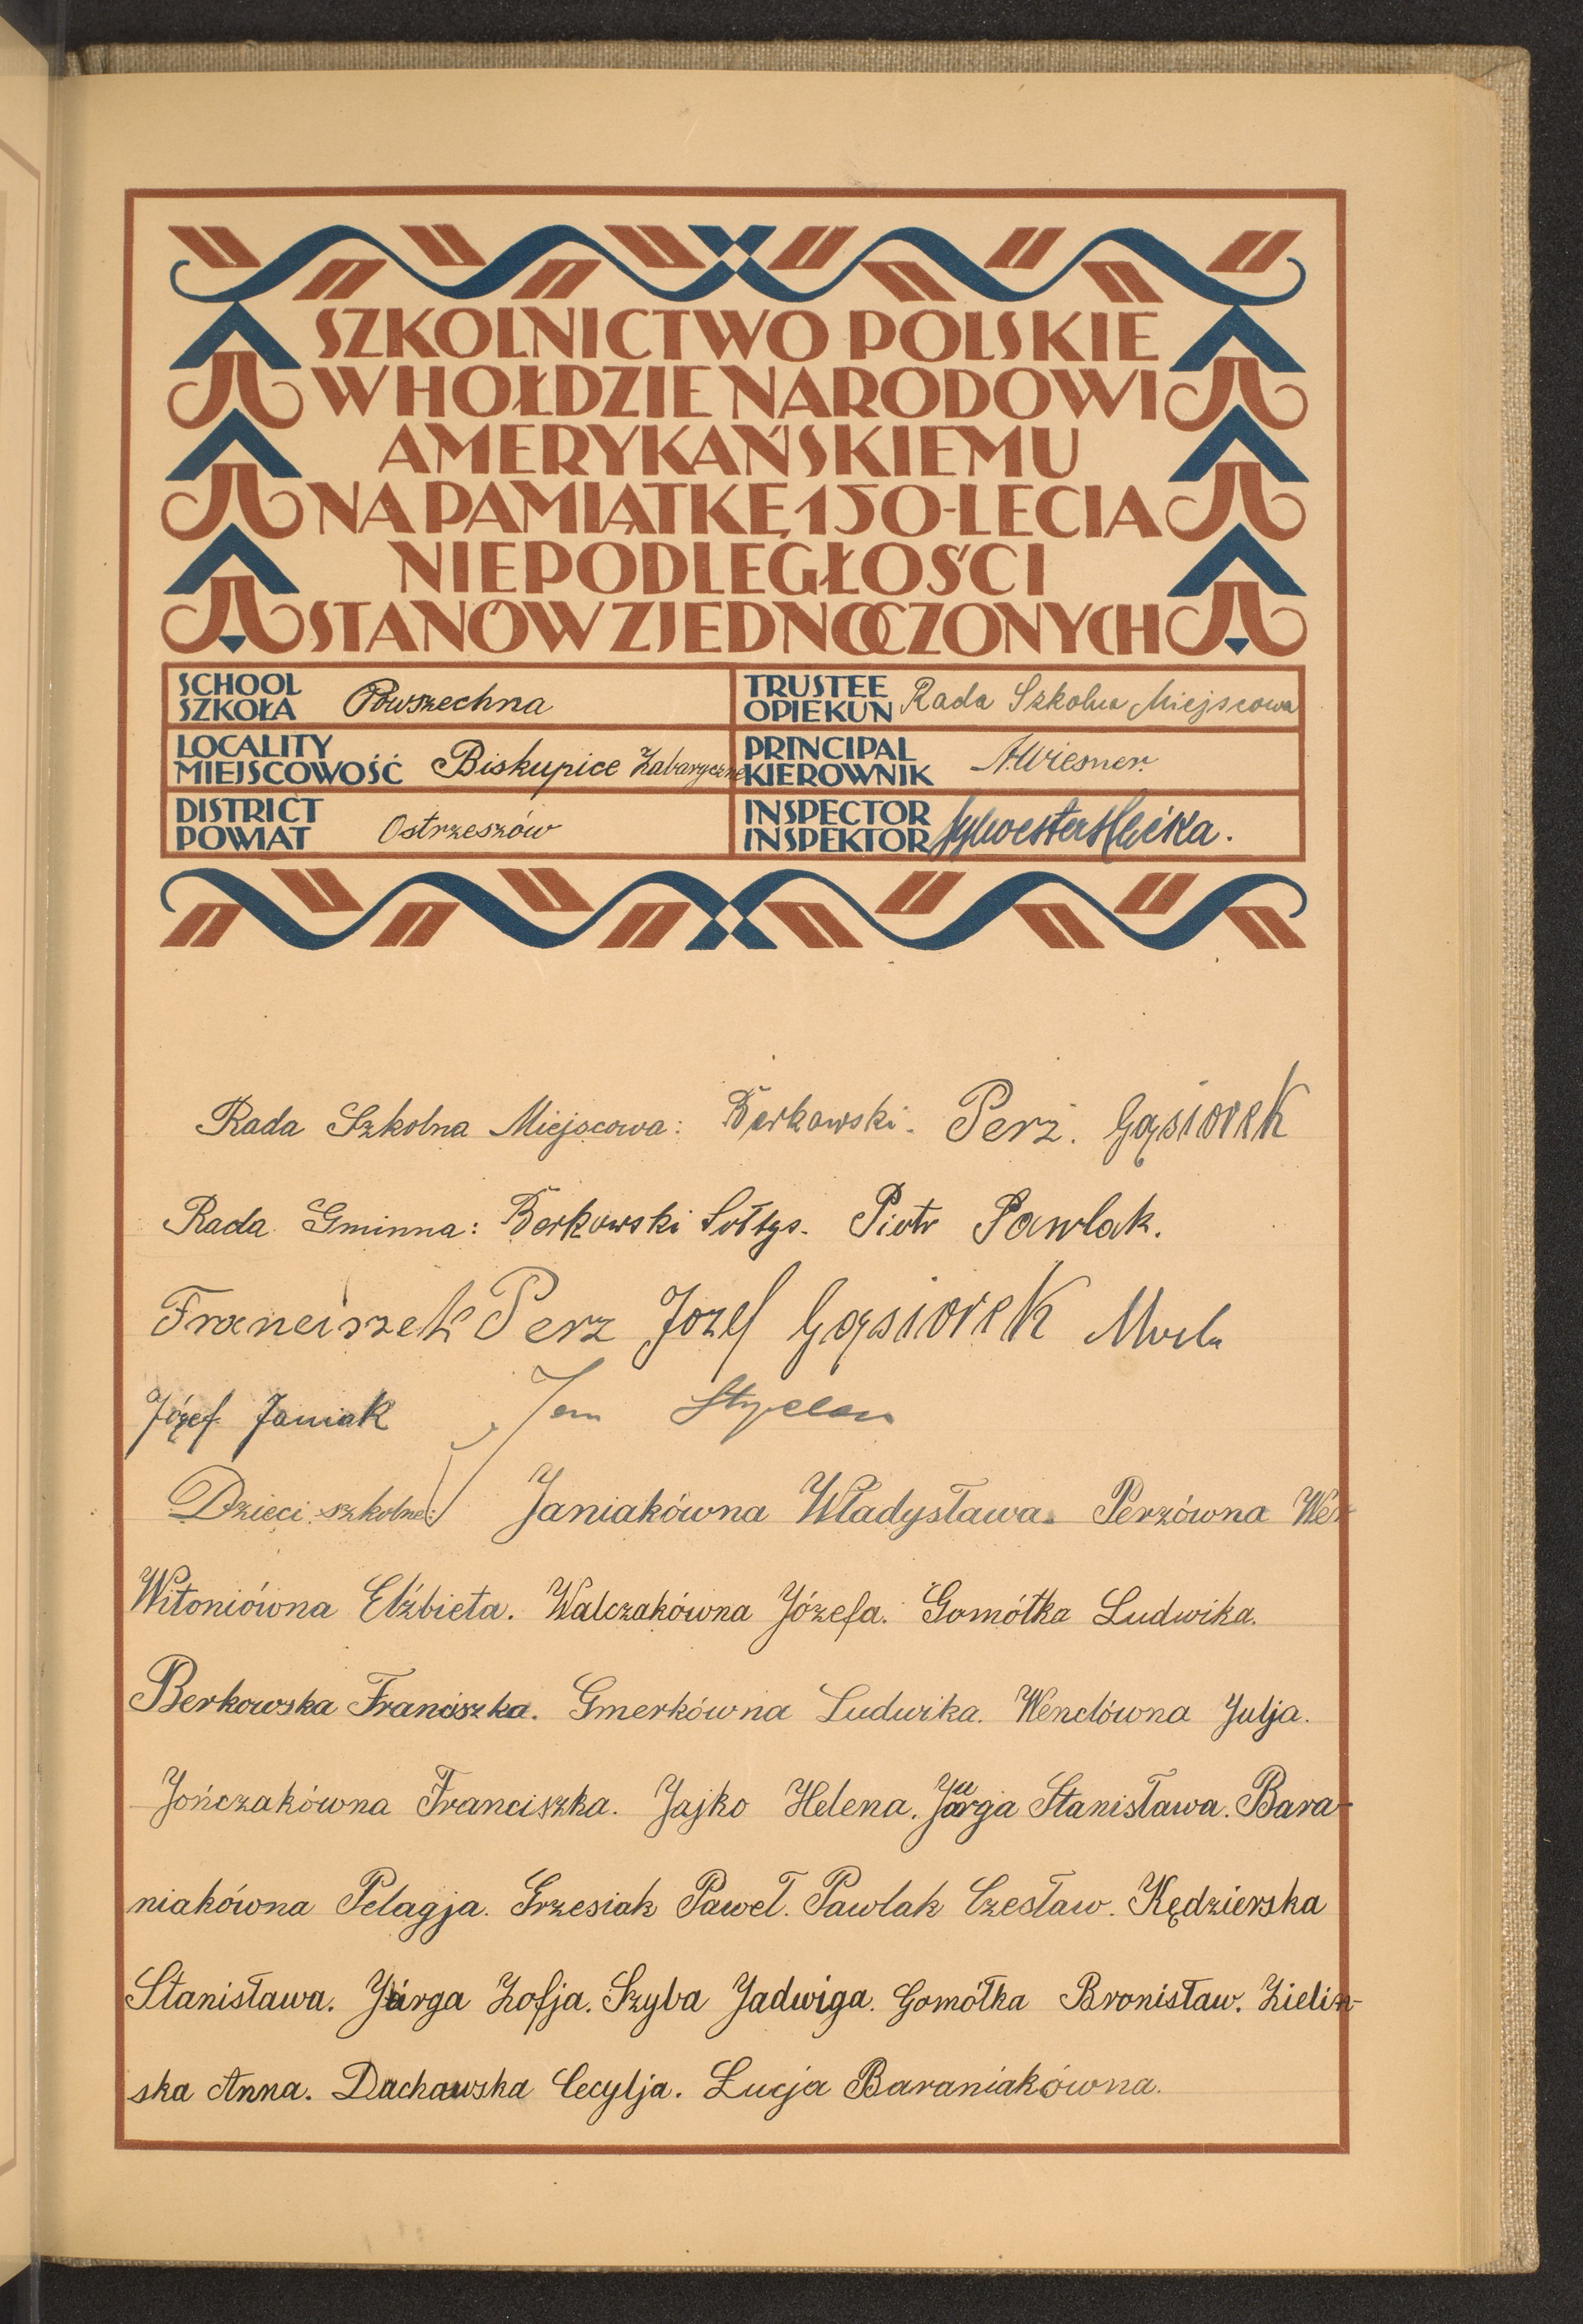 SZKOLNICTWO POLSKIE
W HOŁDZIE NARODOWI
AMERYKAŃSKIEMU
NA PAMIĄTKĘ 150-LECIA
NIEPODLEGŁOŚCI
STANÓW ZJEDNOCZONYCH
SCHOOL
SZKOŁA Powszechna
TRUSTEE
OPIEKUN Rada Szkolna Miejscowa
LOCALITY
MIEJSCOWOŚĆ Biskupice Zabaryczne
PRINCIPAL
KIEROWNIK A. Wiesner.
DISTRICT
POWIAT Ostrzeszów
INSPECTOR
INSPEKTOR Sylwester
Rada Szkolna Miejscowa: Berkowski. Perz. Gąsiorek
Rada Gminna: Berkowski Sołtys. Piotr Pawlak.
Franciszek Perz Jozef Gąsiorek
Józef Janiak Jan
Dzieci szkolne: Janiakówna Władysława. Perzówna Wer
Witoniówna Elżbieta. Walczakówna Józefa. Gomółka Ludwika.
Berkowska Franciszka. Gmerkówna Ludwika. Wenclówna Julja.
Jończakówna Franciszka. Jajko Helena. Jurga Stanisława. Bara-
niakówna Pelagja. Grzesiak Paweł. Pawlak Czesław. Kędzierska
Stanisława. Jurga Zofja. Szyba Jadwiga. Gomółka Bronisław. Zielin-
ska Anna. Dachawska Cecylja. Łucja Baraniakówna.